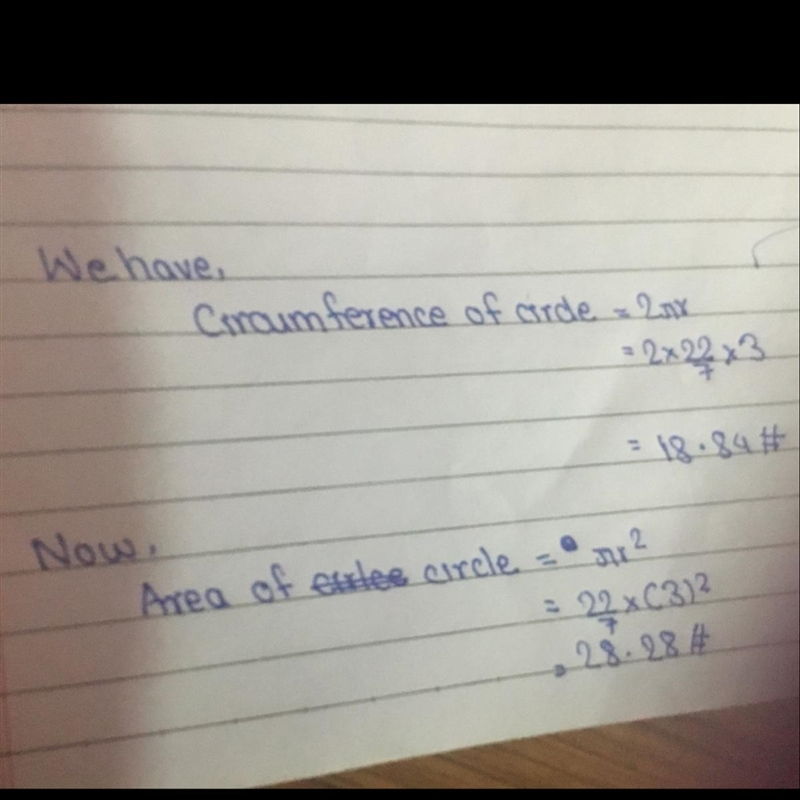 We have,
Circumference of circle = 2πr
= 2 × 22/7 × 3
= 18.84 #
Now,
Area of circle = πr²
= 22/7 × (3)²
= 28.28 #